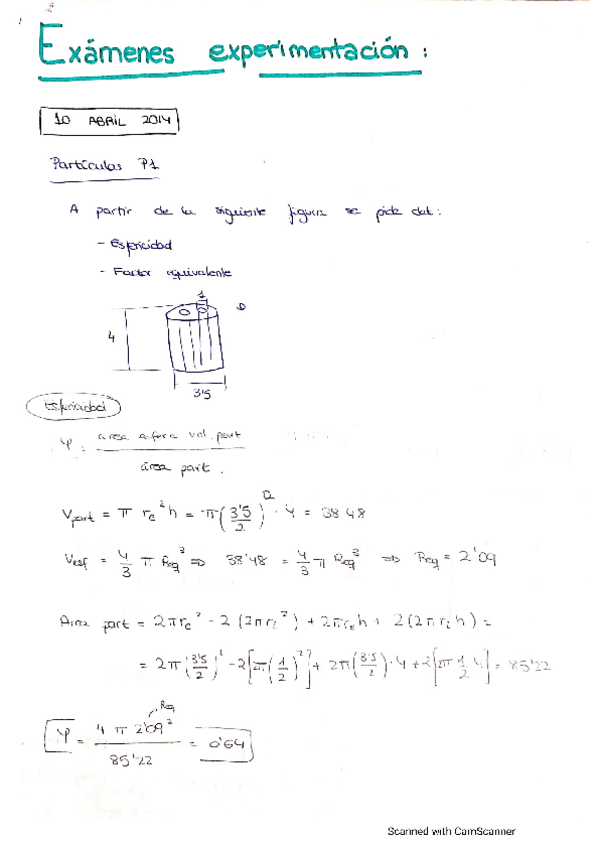 Exámenes experimentación:
10 ABRIL 2014
Partículas P1
A partir de la siguiente figura se pide det:
- Esfericidad
- Factor equivalente
1
4
3'5
Esfericidad
Ψ = area esfera vol. part
área part.
V part = π rc² h = π (3'5/2)² · 4 = 38'48
Vesf = 4/3 π Req³ => 38'48 = 4/3 π Req³ => Req = 2'09
Area part = 2πrc² - 2 (2πri²) + 2πrc h + 2(2πri h) =
= 2π (3'5/2)² - 2[2π(1/2)²] + 2π(3'5/2)·4 + 2[2π 1/2 4] = 85'22
Req
Ψ = 4 π 2'09² / 85'22 = 0'64
Scanned with CamScanner